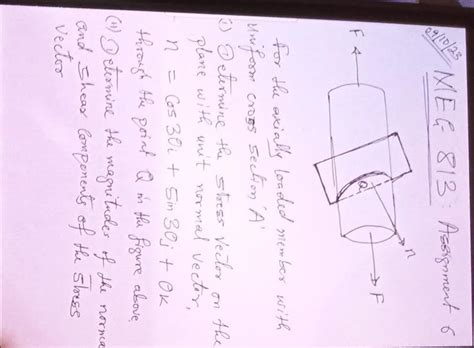 09/10/23
MEG 813: Assignment 6
F
n
Q
F
for the axially loaded member with
Uniform cross section 'A'
i) Determine the stress vector on the
plane with unit normal vector,
n = Cos30i + Sin30j + 0k
through the point Q in the figure above
(ii) Determine the magnitudes of the norma
and shear components of the stress
vector